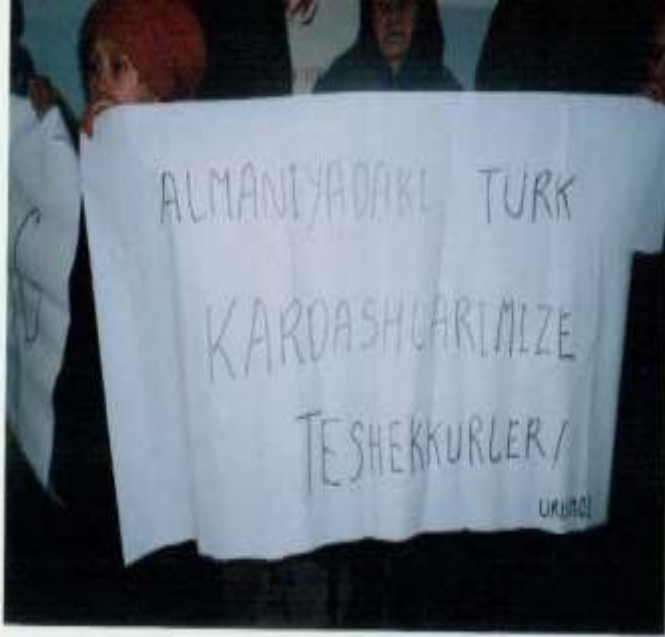 ALMANIYADAKI TURK
KARDASHLARIMIZE
TESHEKKURLER/